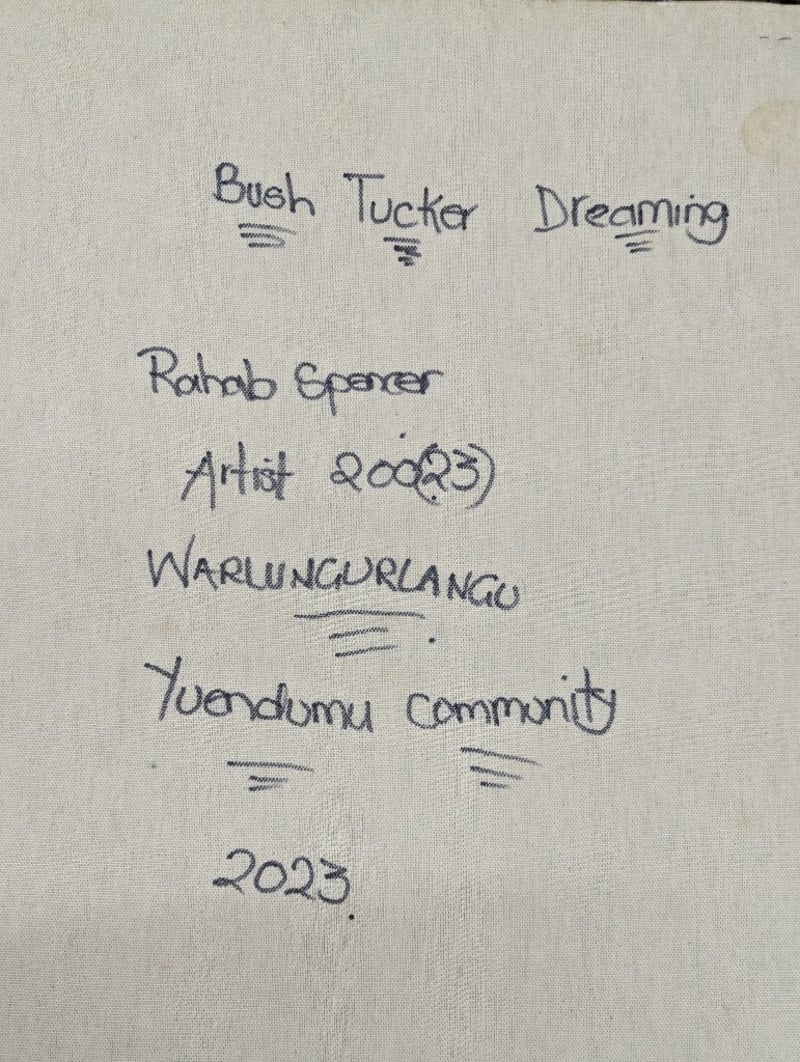 Bush Tucker Dreaming
Rahab Spencer
Artist 200(23)
WARLUNGURLANGU
Yuendumu community
2023